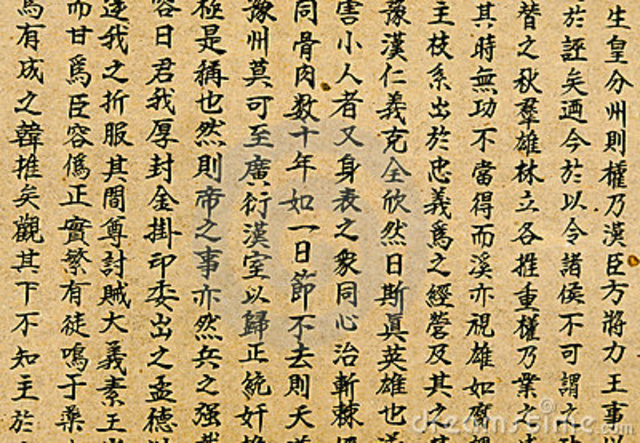 生皇分州則權乃漢臣方將力王事
於誣矣迺今於以令諸侯不可謂之
替之秋羣雄林立各推重權乃業之
其時無功不當得而溪亦視雄如腐
主枝系出於忠義爲之經營及其之
豫漢仁義克全欣然曰斯眞英雄也
害小人者又身表之衆同心治斬棘
同骨肉数十年如一日節不去則天
豫州莫可至廣衍漢室以歸正統奸
極是稱也然則帝之事亦然兵之强
容日君我厚封金掛印委出之孟德
而甘爲臣容僞正實繁有徒鳴于藥
逹我之折服其間尊討賊大義素王
馬有成之韓推矣觀其下不知主於
dreamstime.com